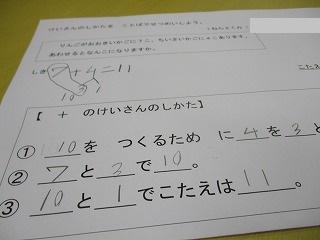 けいさんのしかたを ことばでせつめいしよう。
りんごがおおきいかごに7こ、ちいさいかごに4こあります。
あわせるとなんこになりますか。
しき 7+4=11
3 1
10
こたえ
【 + のけいさんのしかた】
① 10を つくるため に 4を 3と
② 7と 3で10。
③ 10と 1でこたえは 11。